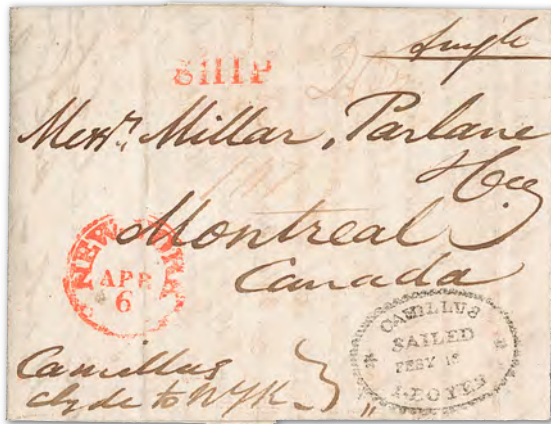 Single
SHIP
Messrs. Millar, Parlane
& Co
Montreal
Canada
NEW YORK
APR
6
CAMILLUS
SAILED
FEBY
Camillus
Clyde to NYk